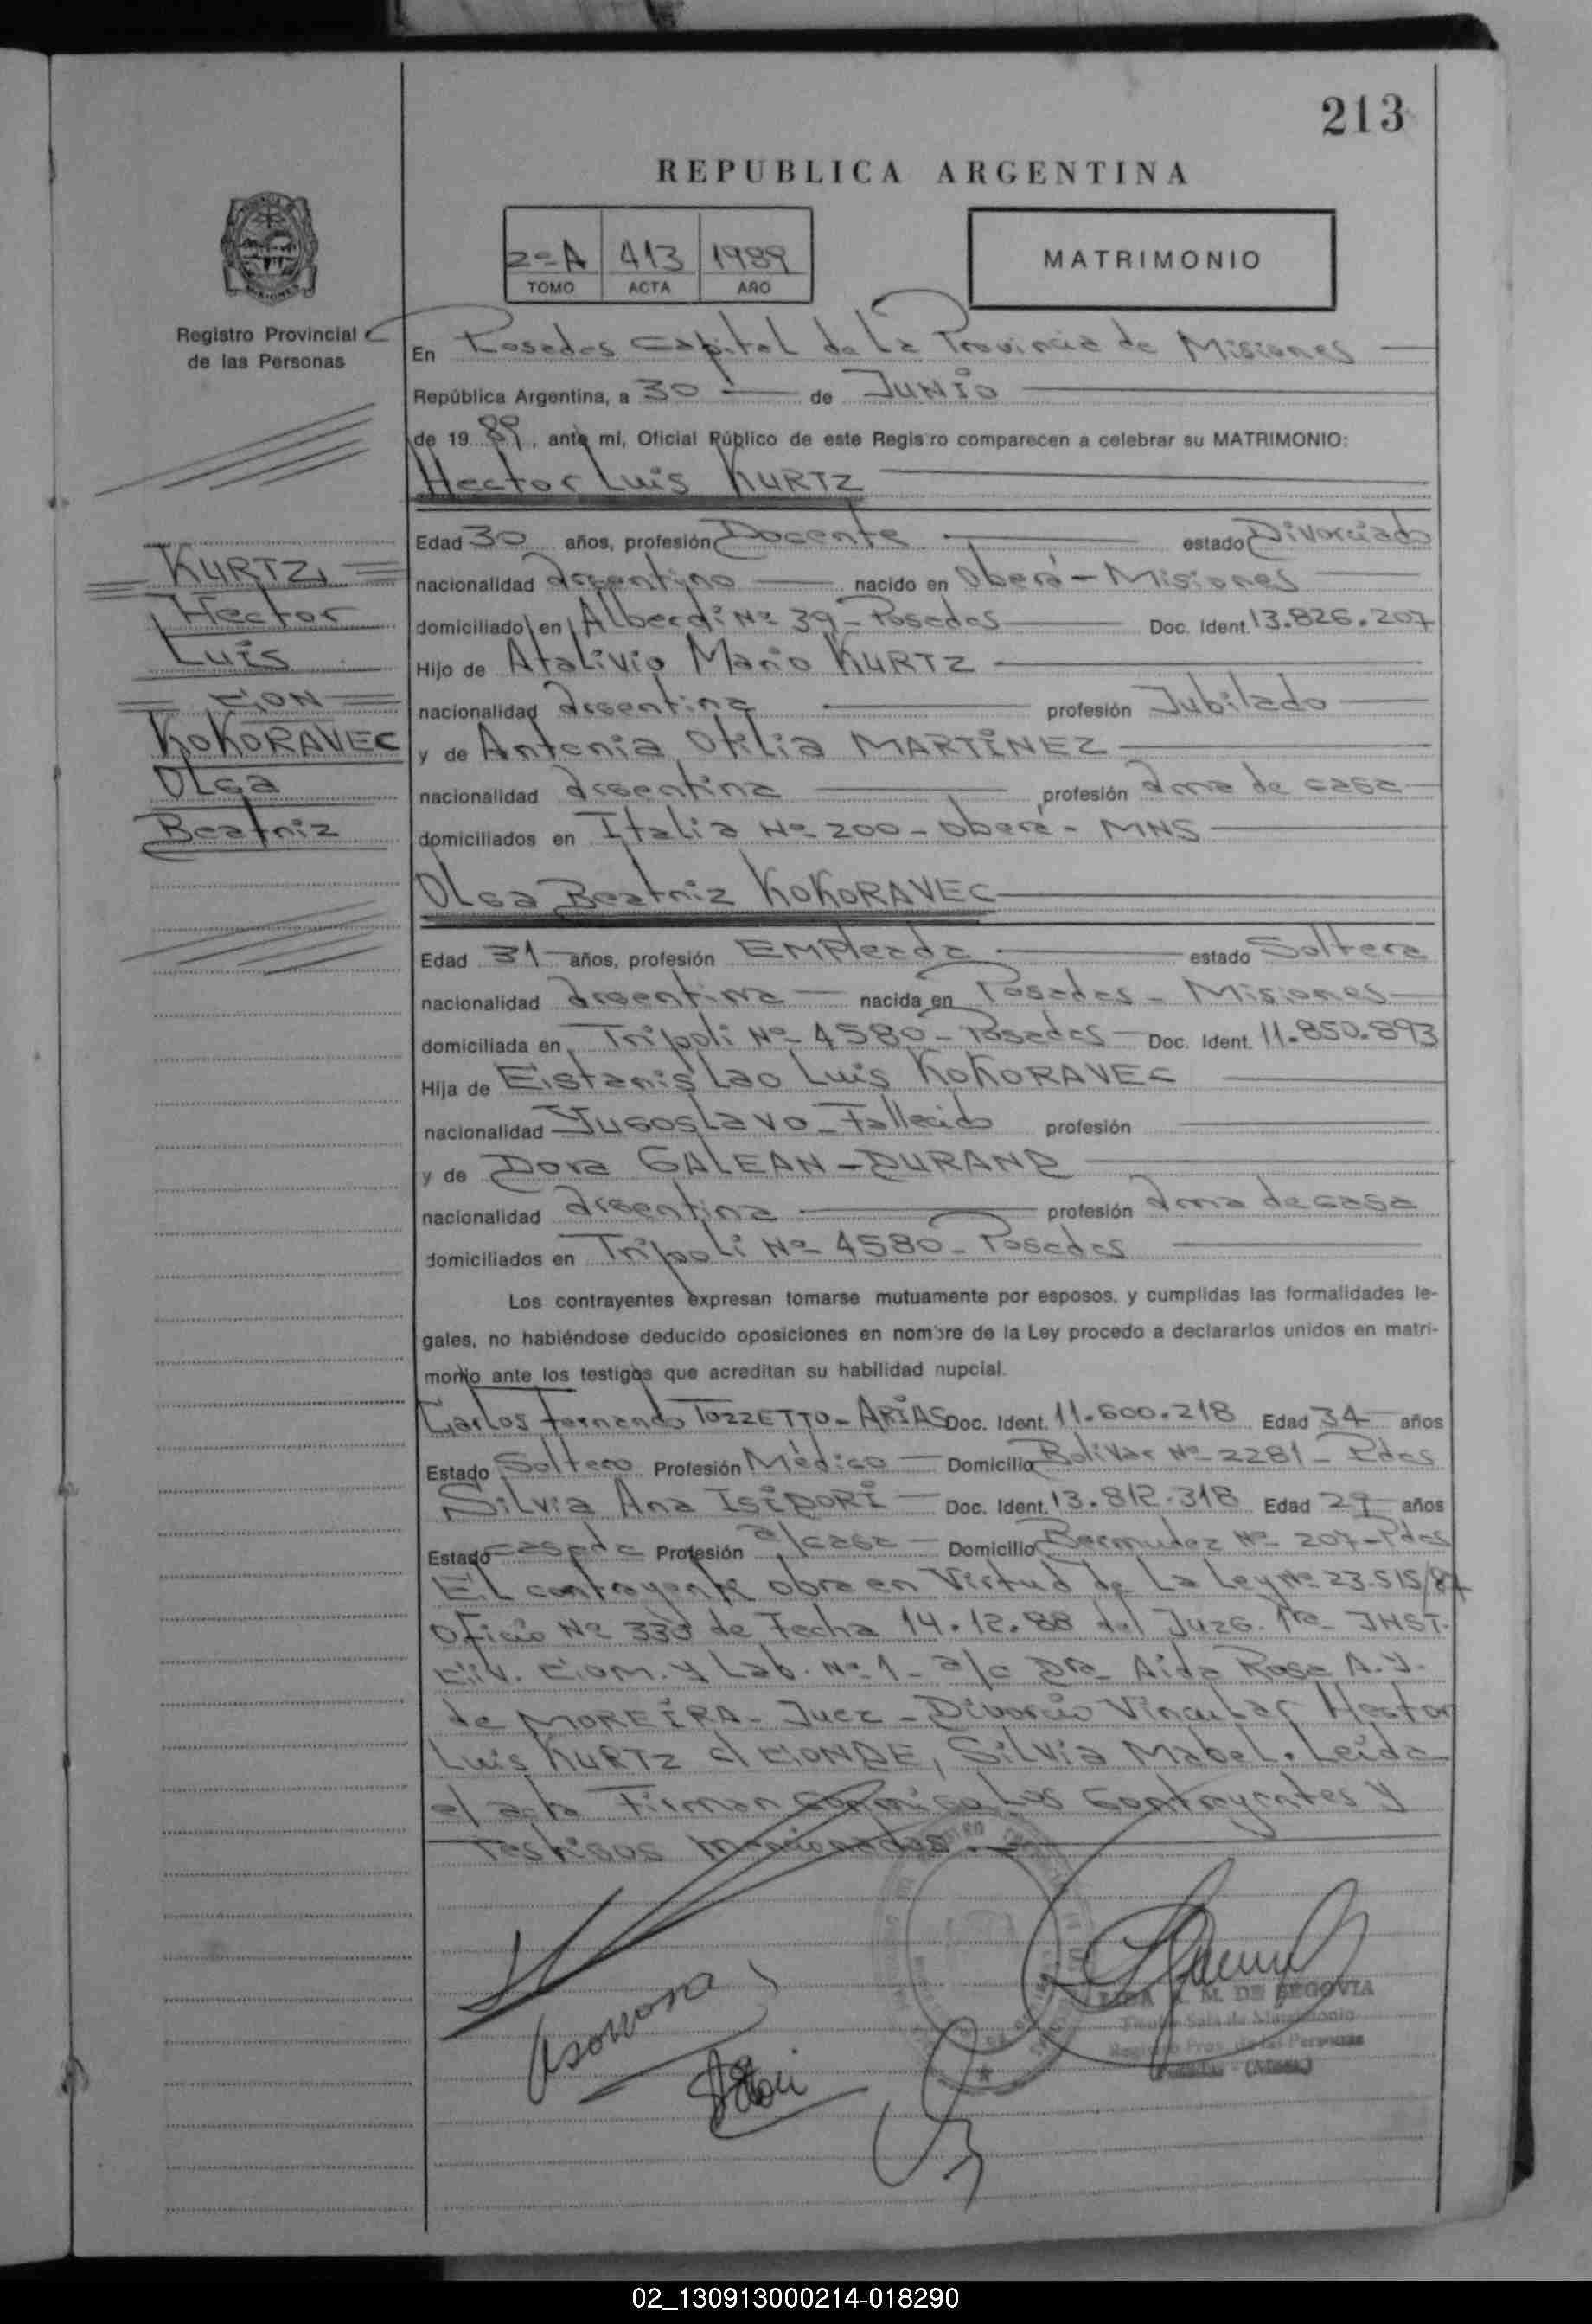 213
REPUBLICA ARGENTINA
2º A 413 1989
TOMO ACTA AÑO
MATRIMONIO
Registro Provincial
de las Personas
En Posadas Capital de la Provincia de Misiones
República Argentina, a 30 de Junio
de 19 89, ante mi, Oficial Público de este Regis ro comparecen a celebrar su MATRIMONIO:
Hector Luis KURTZ
Edad 30 años, profesión Docente estado Divorciado
nacionalidad argentino nacido en Oberá - Misiones
domiciliado en Alberdi Nº 39 - Posadas Doc. Ident. 13.826.207
Hijo de Atalivio Mario KURTZ
nacionalidad argentina profesión Jubilado
y de Antonia Otilia MARTINEZ
nacionalidad argentina profesión ama de casa
domiciliados en Italia Nº 200 - Oberá - MNS
Olga Beatriz KOKORAVEC
Edad 31 años, profesión Empleada estado Soltera
nacionalidad argentina nacida en Posadas - Misiones
domiciliada en Tripoli Nº 4580 - Posadas Doc. Ident. 11.850.893
Hija de Estanislao Luis KOKORAVEC
nacionalidad Yugoslavo - Fallecido profesión
y de Dora GALEAN - DURAND
nacionalidad argentina profesión ama de casa
domiciliados en Tripoli Nº 4580 - Posadas
Los contrayentes expresan tomarse mutuamente por esposos, y cumplidas las formalidades le-
gales, no habiéndose deducido oposiciones en nombre de la Ley procedo a declararlos unidos en matri-
monio ante los testigos que acreditan su habilidad nupcial.
Carlos Fernando TOZZETTO - ARIAS Doc. Ident. 11.600.218 Edad 34 años
Estado Soltero Profesión Médico Domicilio Bolivar Nº 2281 - Pdas
Silvia Ana ISIDORI Doc. Ident. 13.812.318 Edad 29 años
Estado casada Profesión a/casa Domicilio Bermudez Nº 207 - Pdas
El contrayente obra en Virtud de La Ley Nº 23.515/87
Oficio Nº 333 de Fecha 14.12.88 del Juzg. 1ra INST.
Civ. Com. y Lab. Nº 1 - a/c DRA Aida Rosa A. J.
de MOREIRA - Juez - Divorcio Vincular Hector
Luis KURTZ c/ CONDE, Silvia Mabel. Leida
el acta Firman conmigo los contrayentes y
testigos mencionados.
KURTZ,
Hector
Luis
CON
KOKORAVEC
Olga
Beatriz
M. DE SEGOVIA
Sala de Matrimonio
Registro Prov. de las Personas
02_130913000214-018290